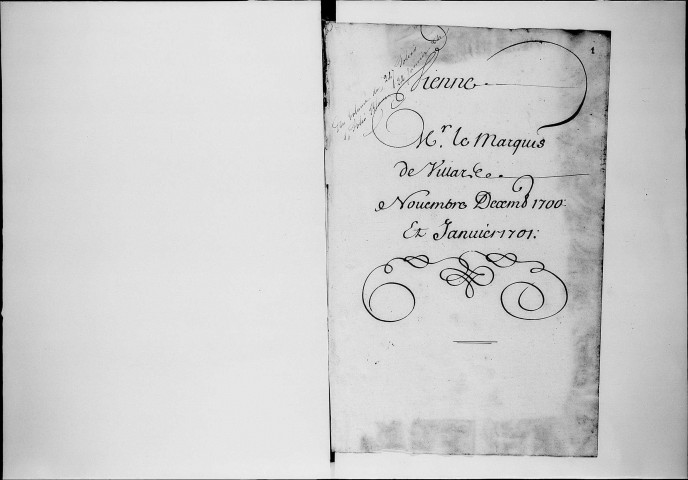 1
Vienne
Mr. le Marquis
de Villars
Novembre Decemb 1700.
Et Janvier 1701.